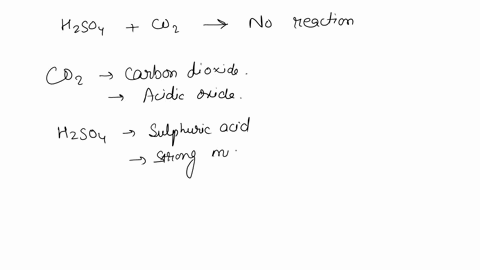 H₂SO₄ + CO₂ → No reaction
CO₂ → Carbon dioxide.
→ Acidic oxide.
H₂SO₄ → Sulphuric acid
→ strong m.